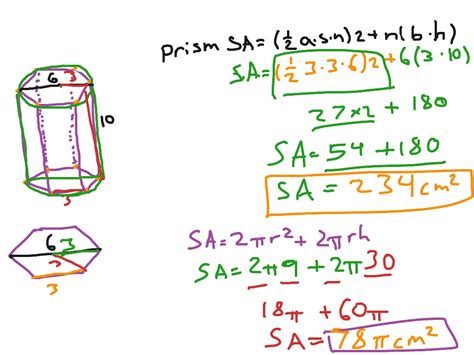 prism SA=(½a·s·n)2+n(b·h)
SA=(½3·3·6)2+6(3·10)
27×2 + 180
SA=54+180
SA=234cm²
6 3
10
3
SA=2πr²+2πrh
SA=2π9+2π30
18π+60π
SA=78πcm²
6 3
3